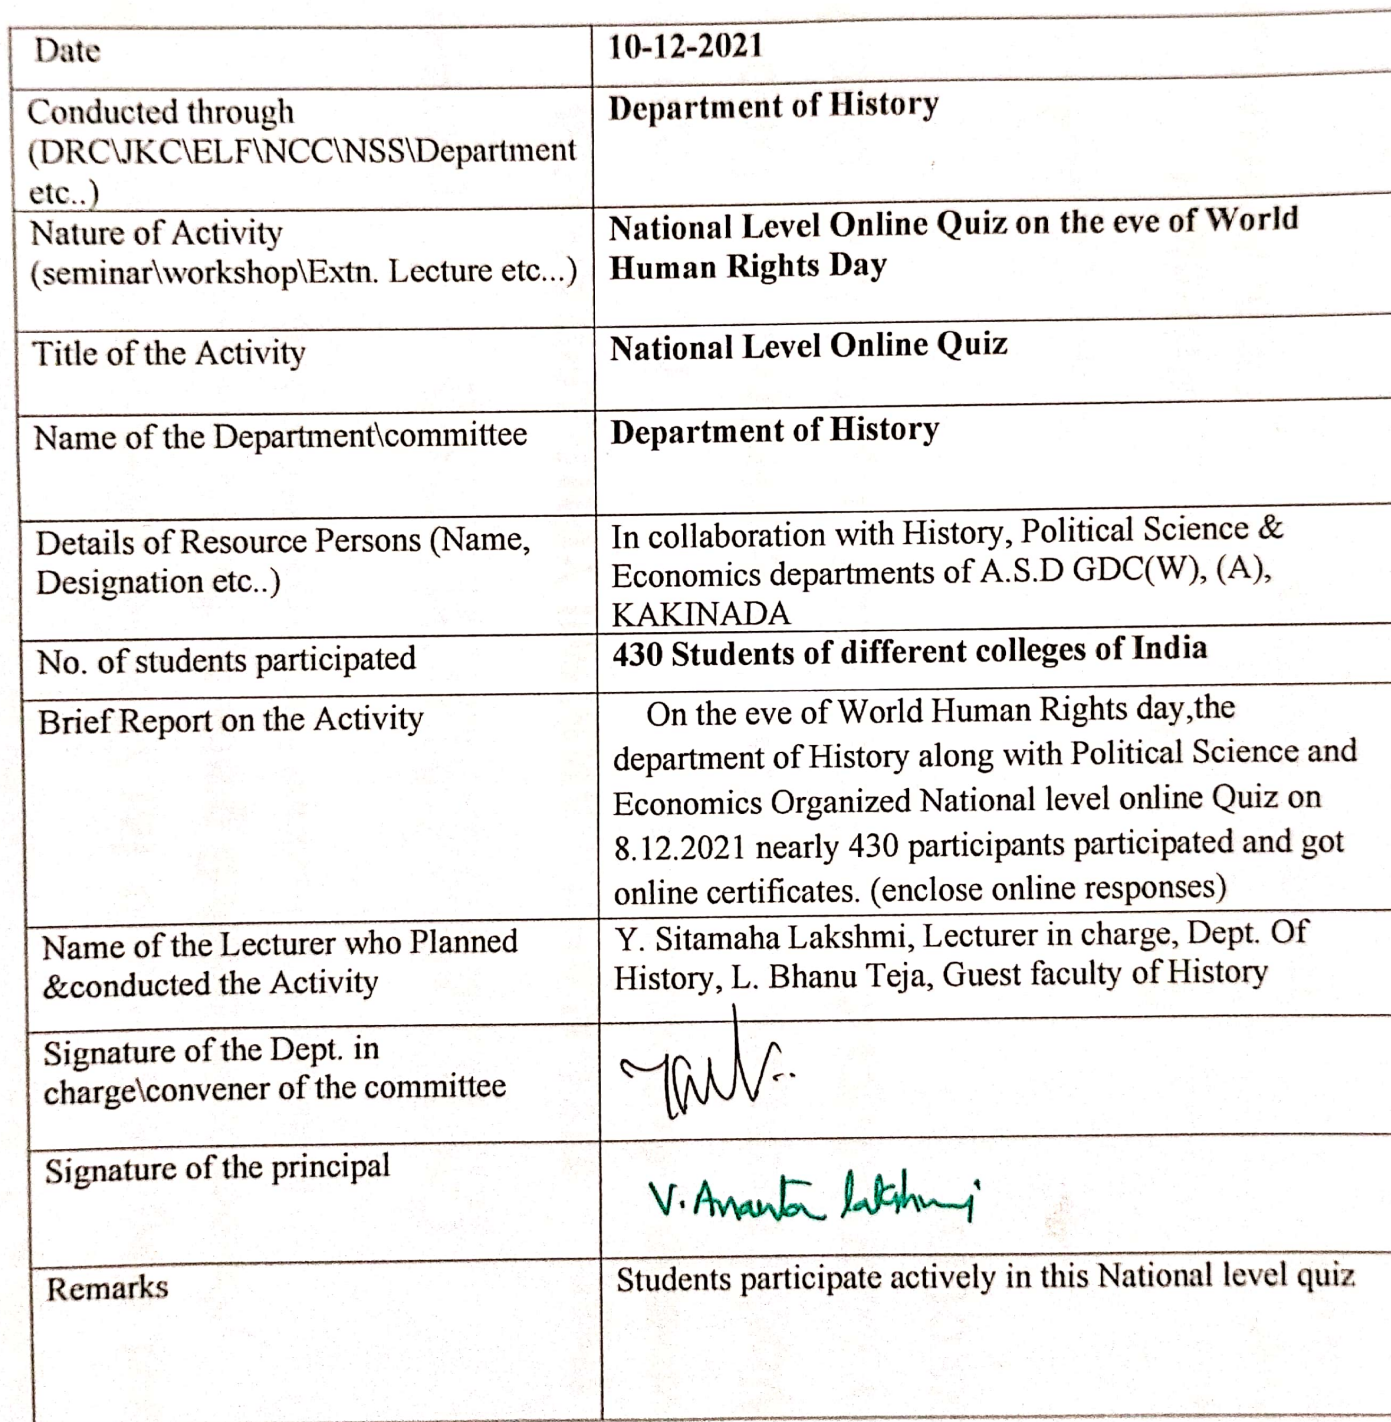 Date
10-12-2021
Conducted through
(DRC\JKC\ELF\NCC\NSS\Department
etc..)
Department of History
Nature of Activity
(seminar\workshop\Extn. Lecture etc...)
National Level Online Quiz on the eve of World
Human Rights Day
Title of the Activity
National Level Online Quiz
Name of the Department\committee
Department of History
Details of Resource Persons (Name,
Designation etc..)
In collaboration with History, Political Science &
Economics departments of A.S.D GDC(W), (A),
KAKINADA
No. of students participated
430 Students of different colleges of India
Brief Report on the Activity
On the eve of World Human Rights day,the
department of History along with Political Science and
Economics Organized National level online Quiz on
8.12.2021 nearly 430 participants participated and got
online certificates. (enclose online responses)
Name of the Lecturer who Planned
&conducted the Activity
Y. Sitamaha Lakshmi, Lecturer in charge, Dept. Of
History, L. Bhanu Teja, Guest faculty of History
Signature of the Dept. in
charge\convener of the committee
Signature of the principal
V. Ananta lakshmi
Remarks
Students participate actively in this National level quiz